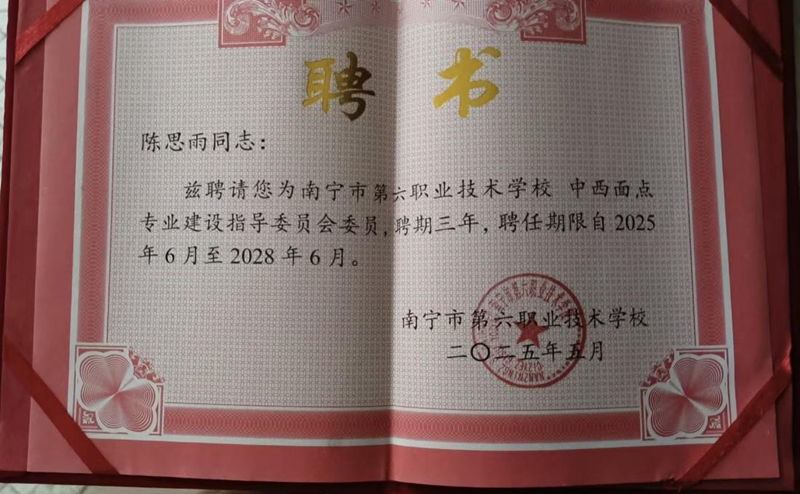 聘书
陈思雨同志：
兹聘请您为南宁市第六职业技术学校 中西面点
专业建设指导委员会委员，聘期三年，聘任期限自2025
年6月至2028年6月。
南宁市第六职业技术学校
二〇二五年五月
南宁市第六职业技术学校